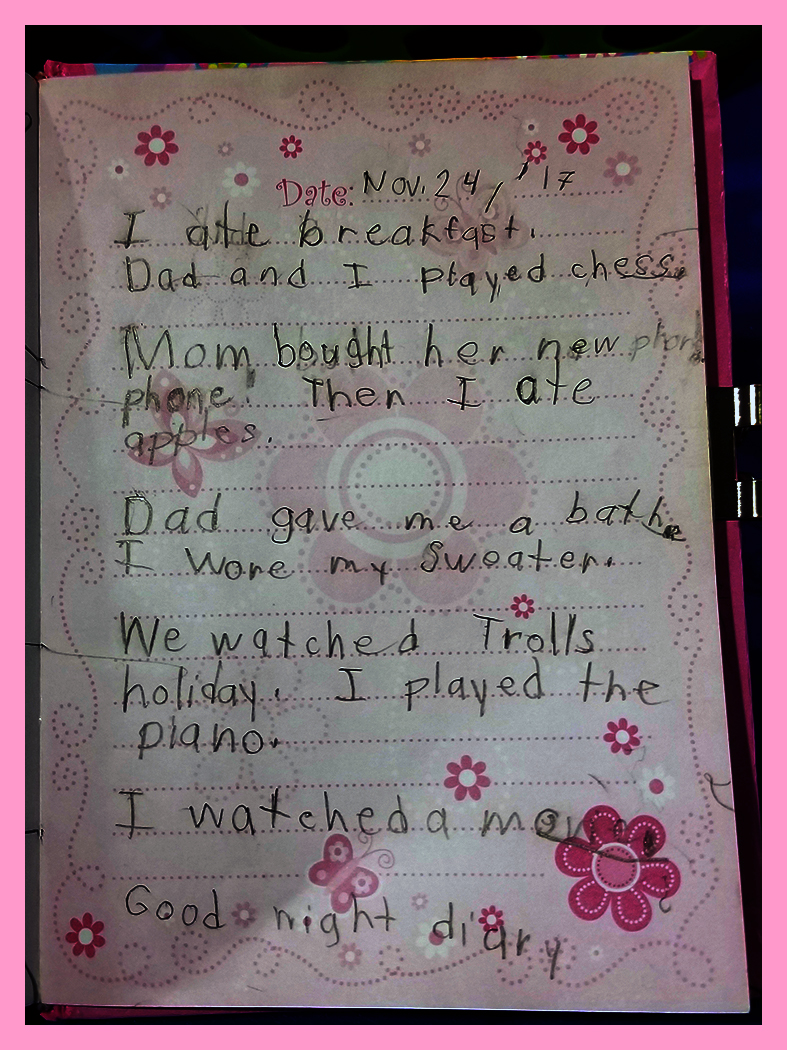 Date: Nov. 24, '17
I ate breakfast.
Dad and I played chess.
Mom bought her new
phone! Then I ate
apples.
Dad gave me a bath
I wore my sweater.
We watched Trolls
holiday. I played the
piano.
I watched a
Good night diary